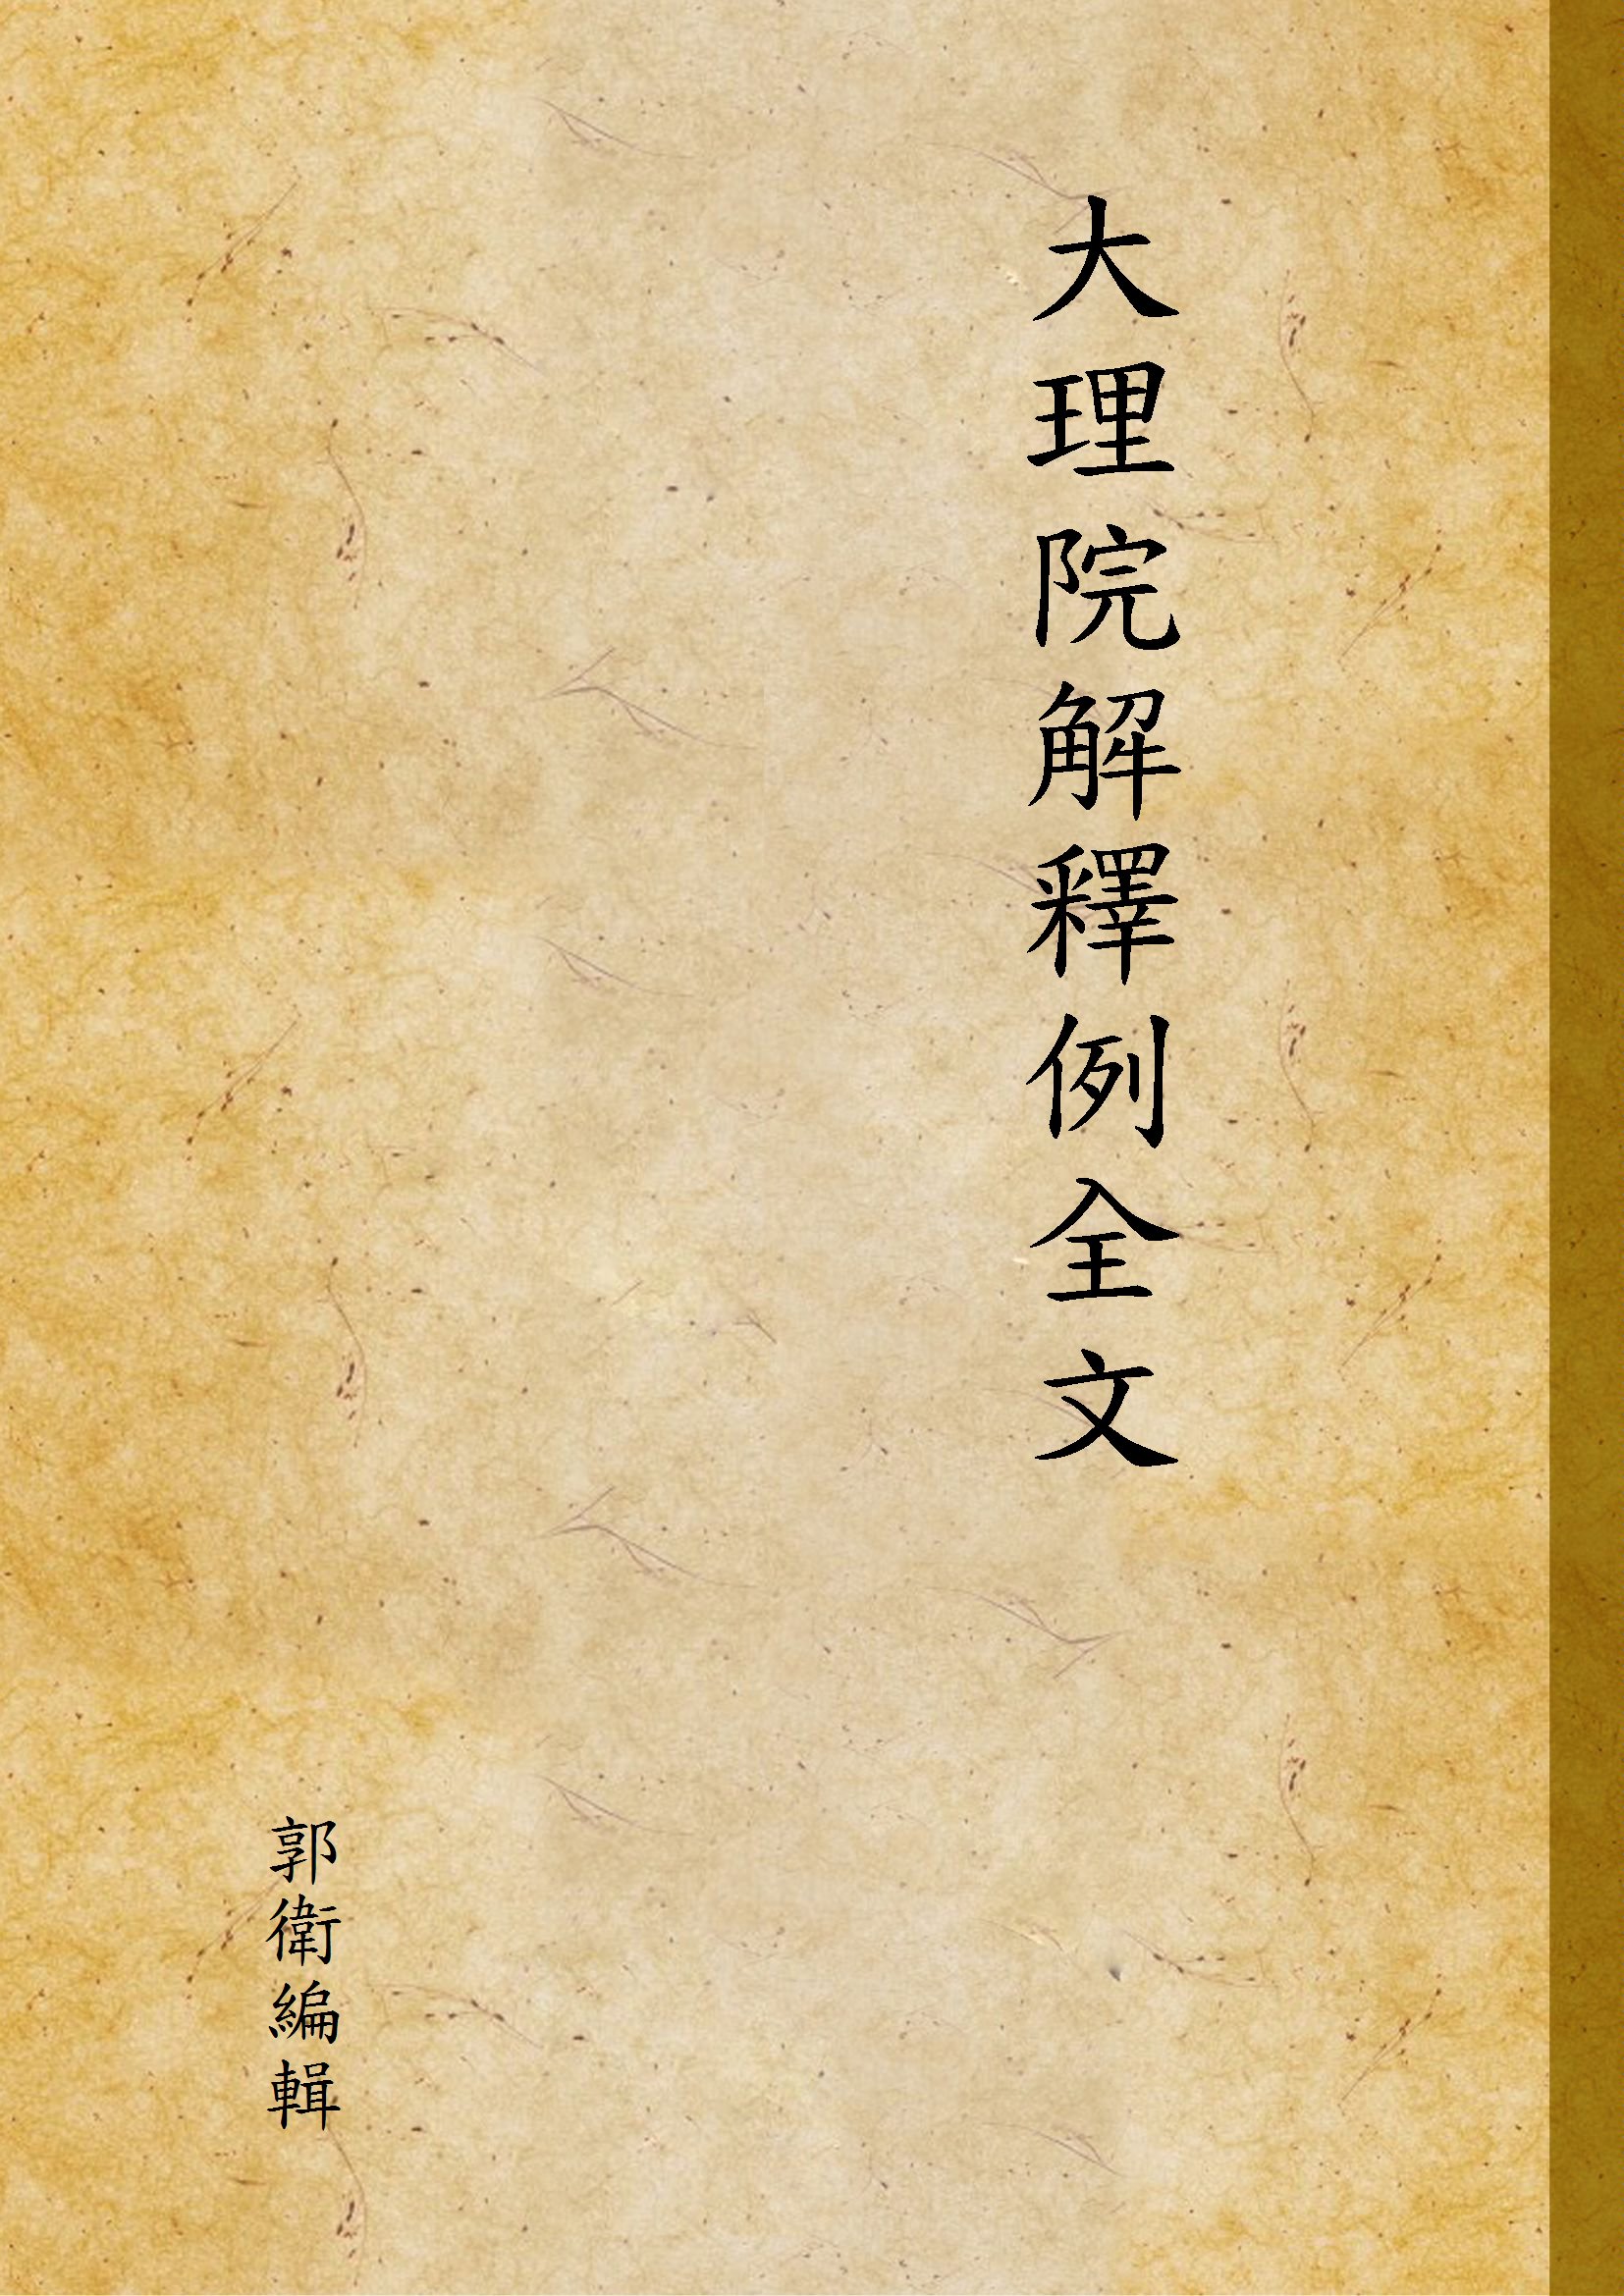 大理院解釋例全文
郭衛編輯